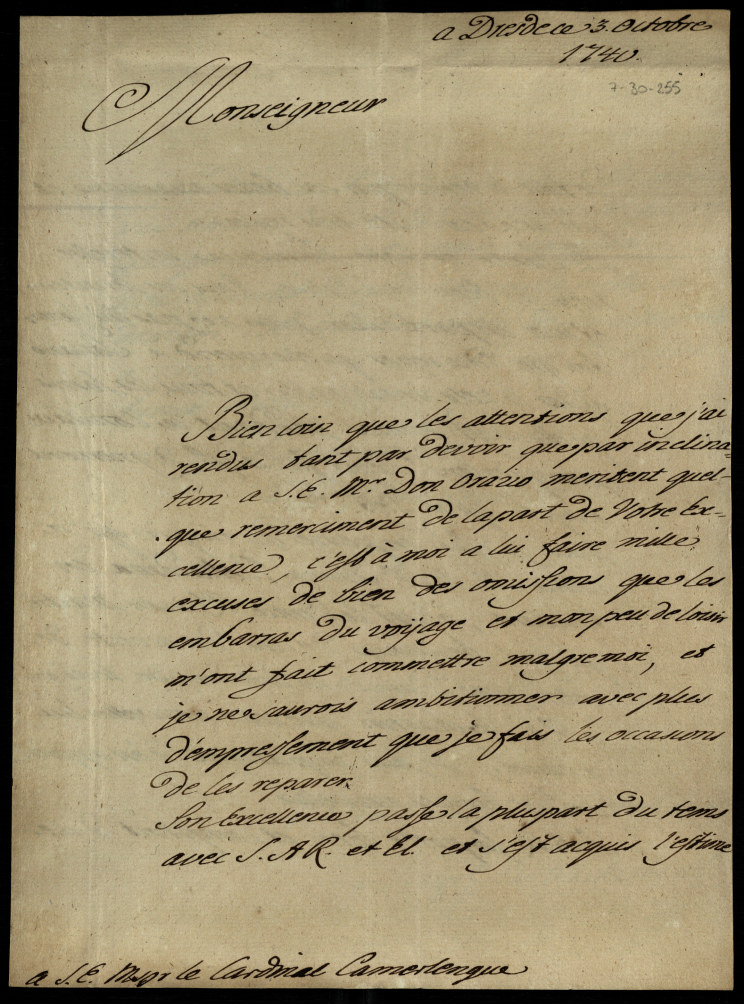 a Dresde ce 3. Octobre
1740.
7-30-255
Monseigneur
Bien loin que les attentions que j'ai
rendus tant par devoir que par inclina=
tion a S.E. Mr. Don Orazio meritent quel-
que remerciment de la part de Votre Ex-
cellence, c'est à moi a lui faire mille
excuses de bien des omissions que les
embarras du voÿage et mon peu de loisir
m'ont fait commettre malgre moi, et
je ne saurois ambitionner avec plus
d'empressement que je fais les occasions
de les reparer.
Son Excellence passe la pluspart du tems
avec S. A R. et El. et s'est acquis l'estime
a S.E. Msgr le Cardinal Camerlengue